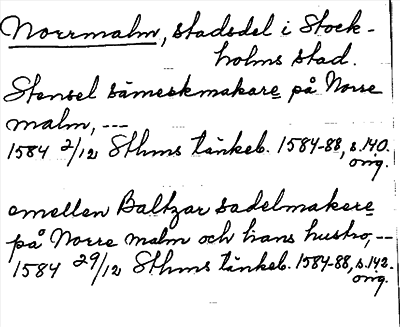 Norrmalm, stadsdel i Stock-
holms stad.
Stensel sämeskmakare på Norre
malm, ---
1584 2/12 Sthms tänkeb. 1584-88, s.140.
orig.
emellen Baltzar sadelmakere
på Norre malm och hans hustro, --
1584 29/12 Sthms tänkeb. 1584-88, s.142.
orig.